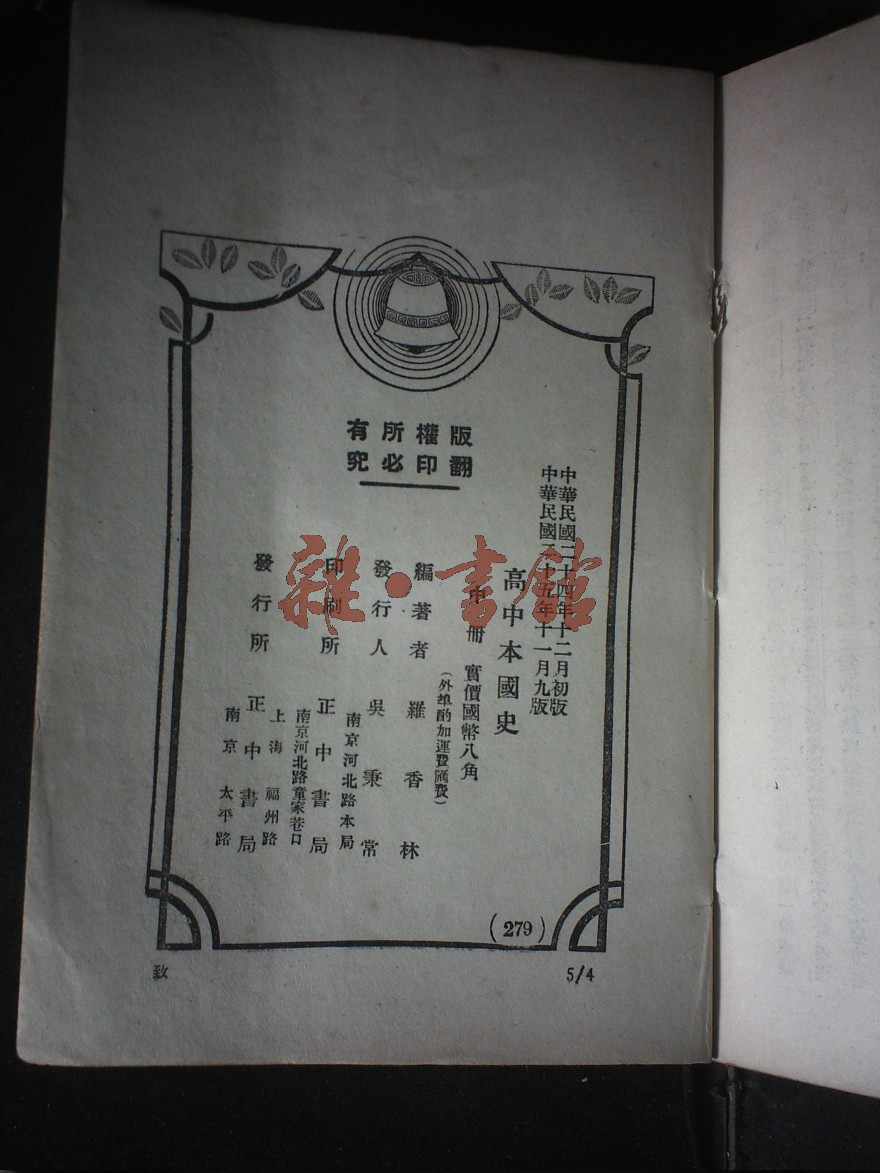 版權所有
翻印必究
中華民國二十四年十二月初版
中華民國二十五年十一月九版
高中本國史
中冊 實價國幣八角
(外埠酌加運費匯費)
編著者 羅香林
發行人 吳秉常
南京河北路本局
印刷所 正中書局
南京河北路童家巷口
發行所 正中書局
上海福州路
南京太平路
(279)
致
5/4
雜·書館